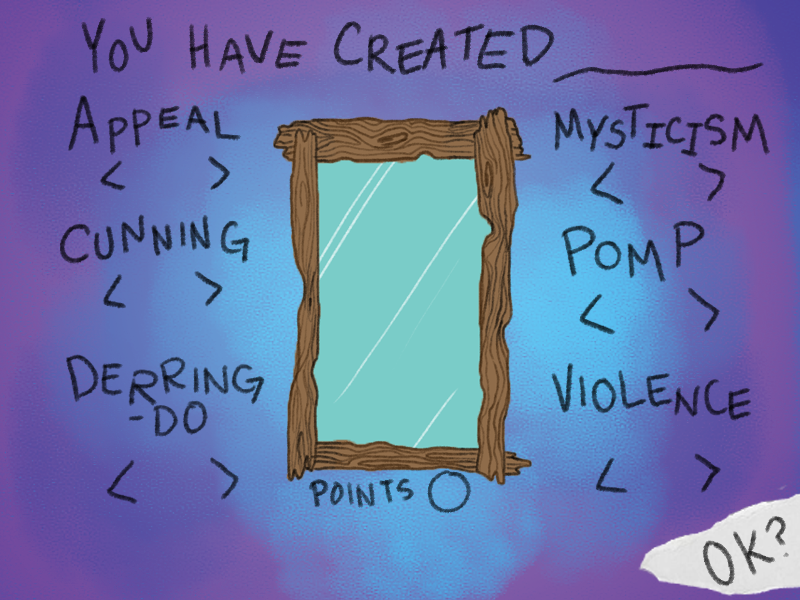 YOU HAVE CREATED
APPEAL
< >
CUNNING
< >
DERRING
-DO
< >
MYSTICISM
< >
POMP
< >
VIOLENCE
< >
POINTS
OK?